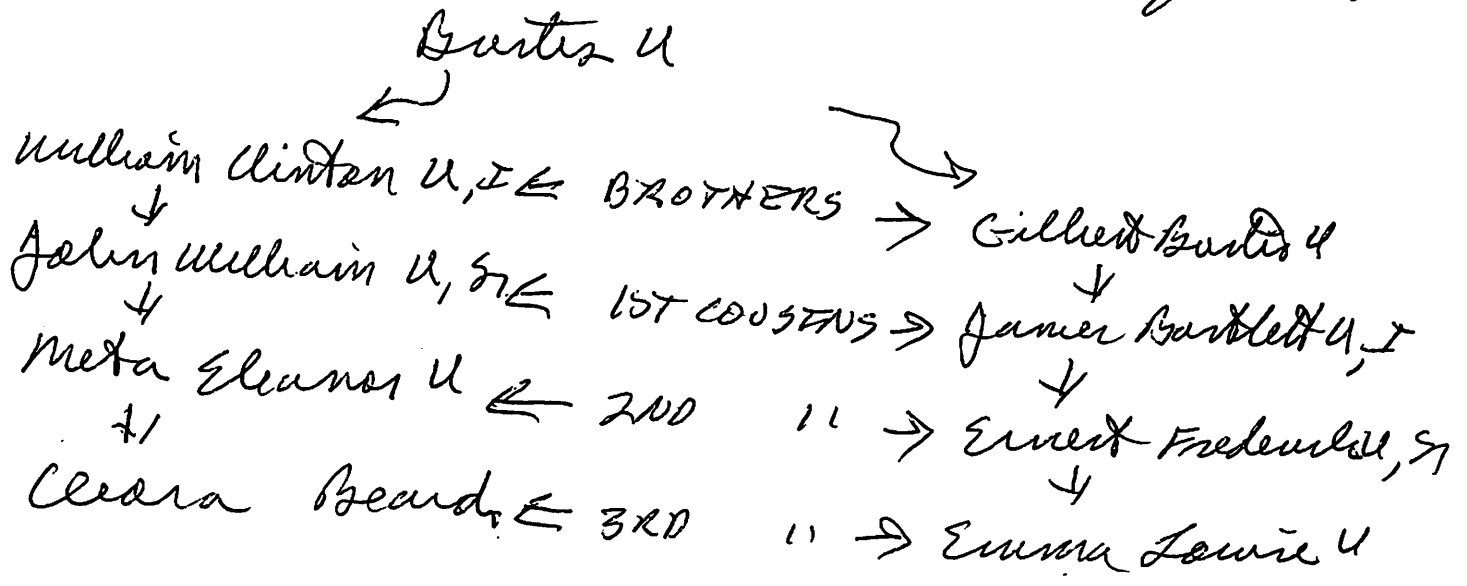 Bartis U
William Clinton U, I ← BROTHERS → Gilbert Bartis U
John William U, Sr ← 1ST COUSINS → James Bartlett U, I
Meta Eleanor U ← 2ND " → Ernest Frederick U, Sr
Beard ← 3RD " → Emma Louise U